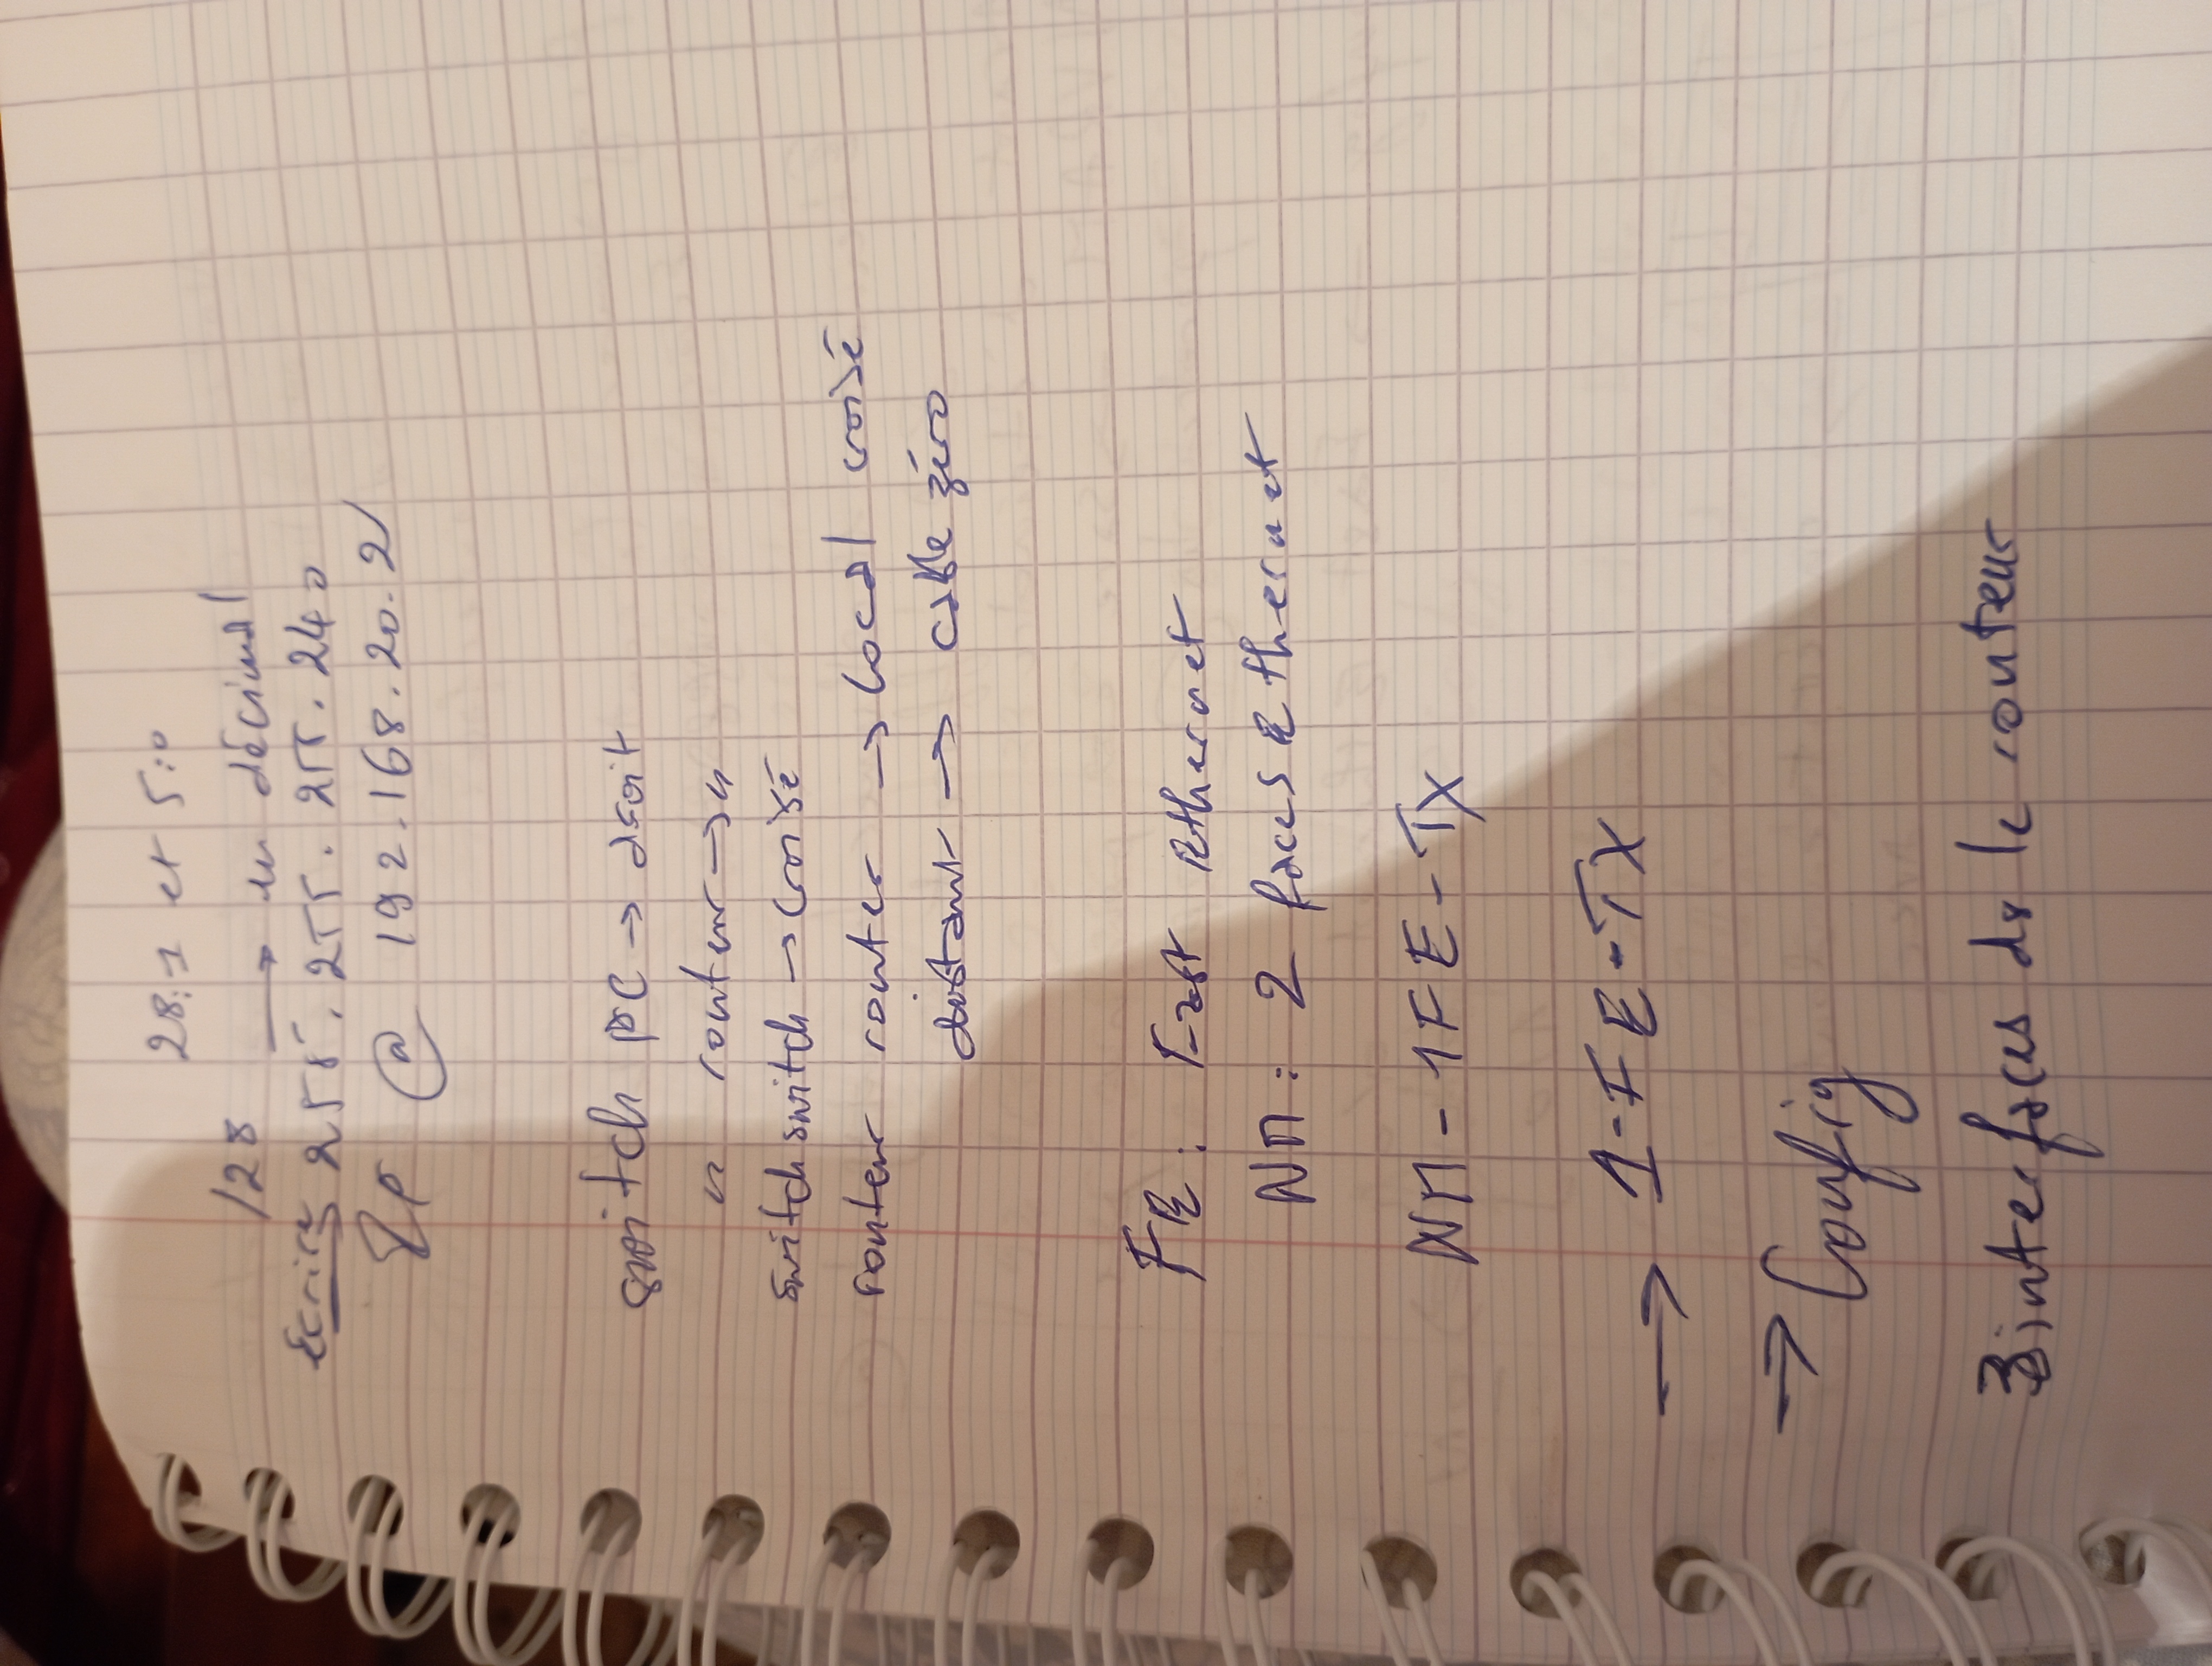 28:1 et 5:0
/28 → en décimal
Ecrire 255.255.255.240
IP @ 192.168.20.21
switch pc → droit
" routeur → "
switch switch → croisé
router router → local croisé
distant → cable zéro
FE: Fast ethernet
NM: 2 faces ethernet
NM-1FE-TX
→ 1-FE-TX
→ Config
3 interfaces ds le routeur